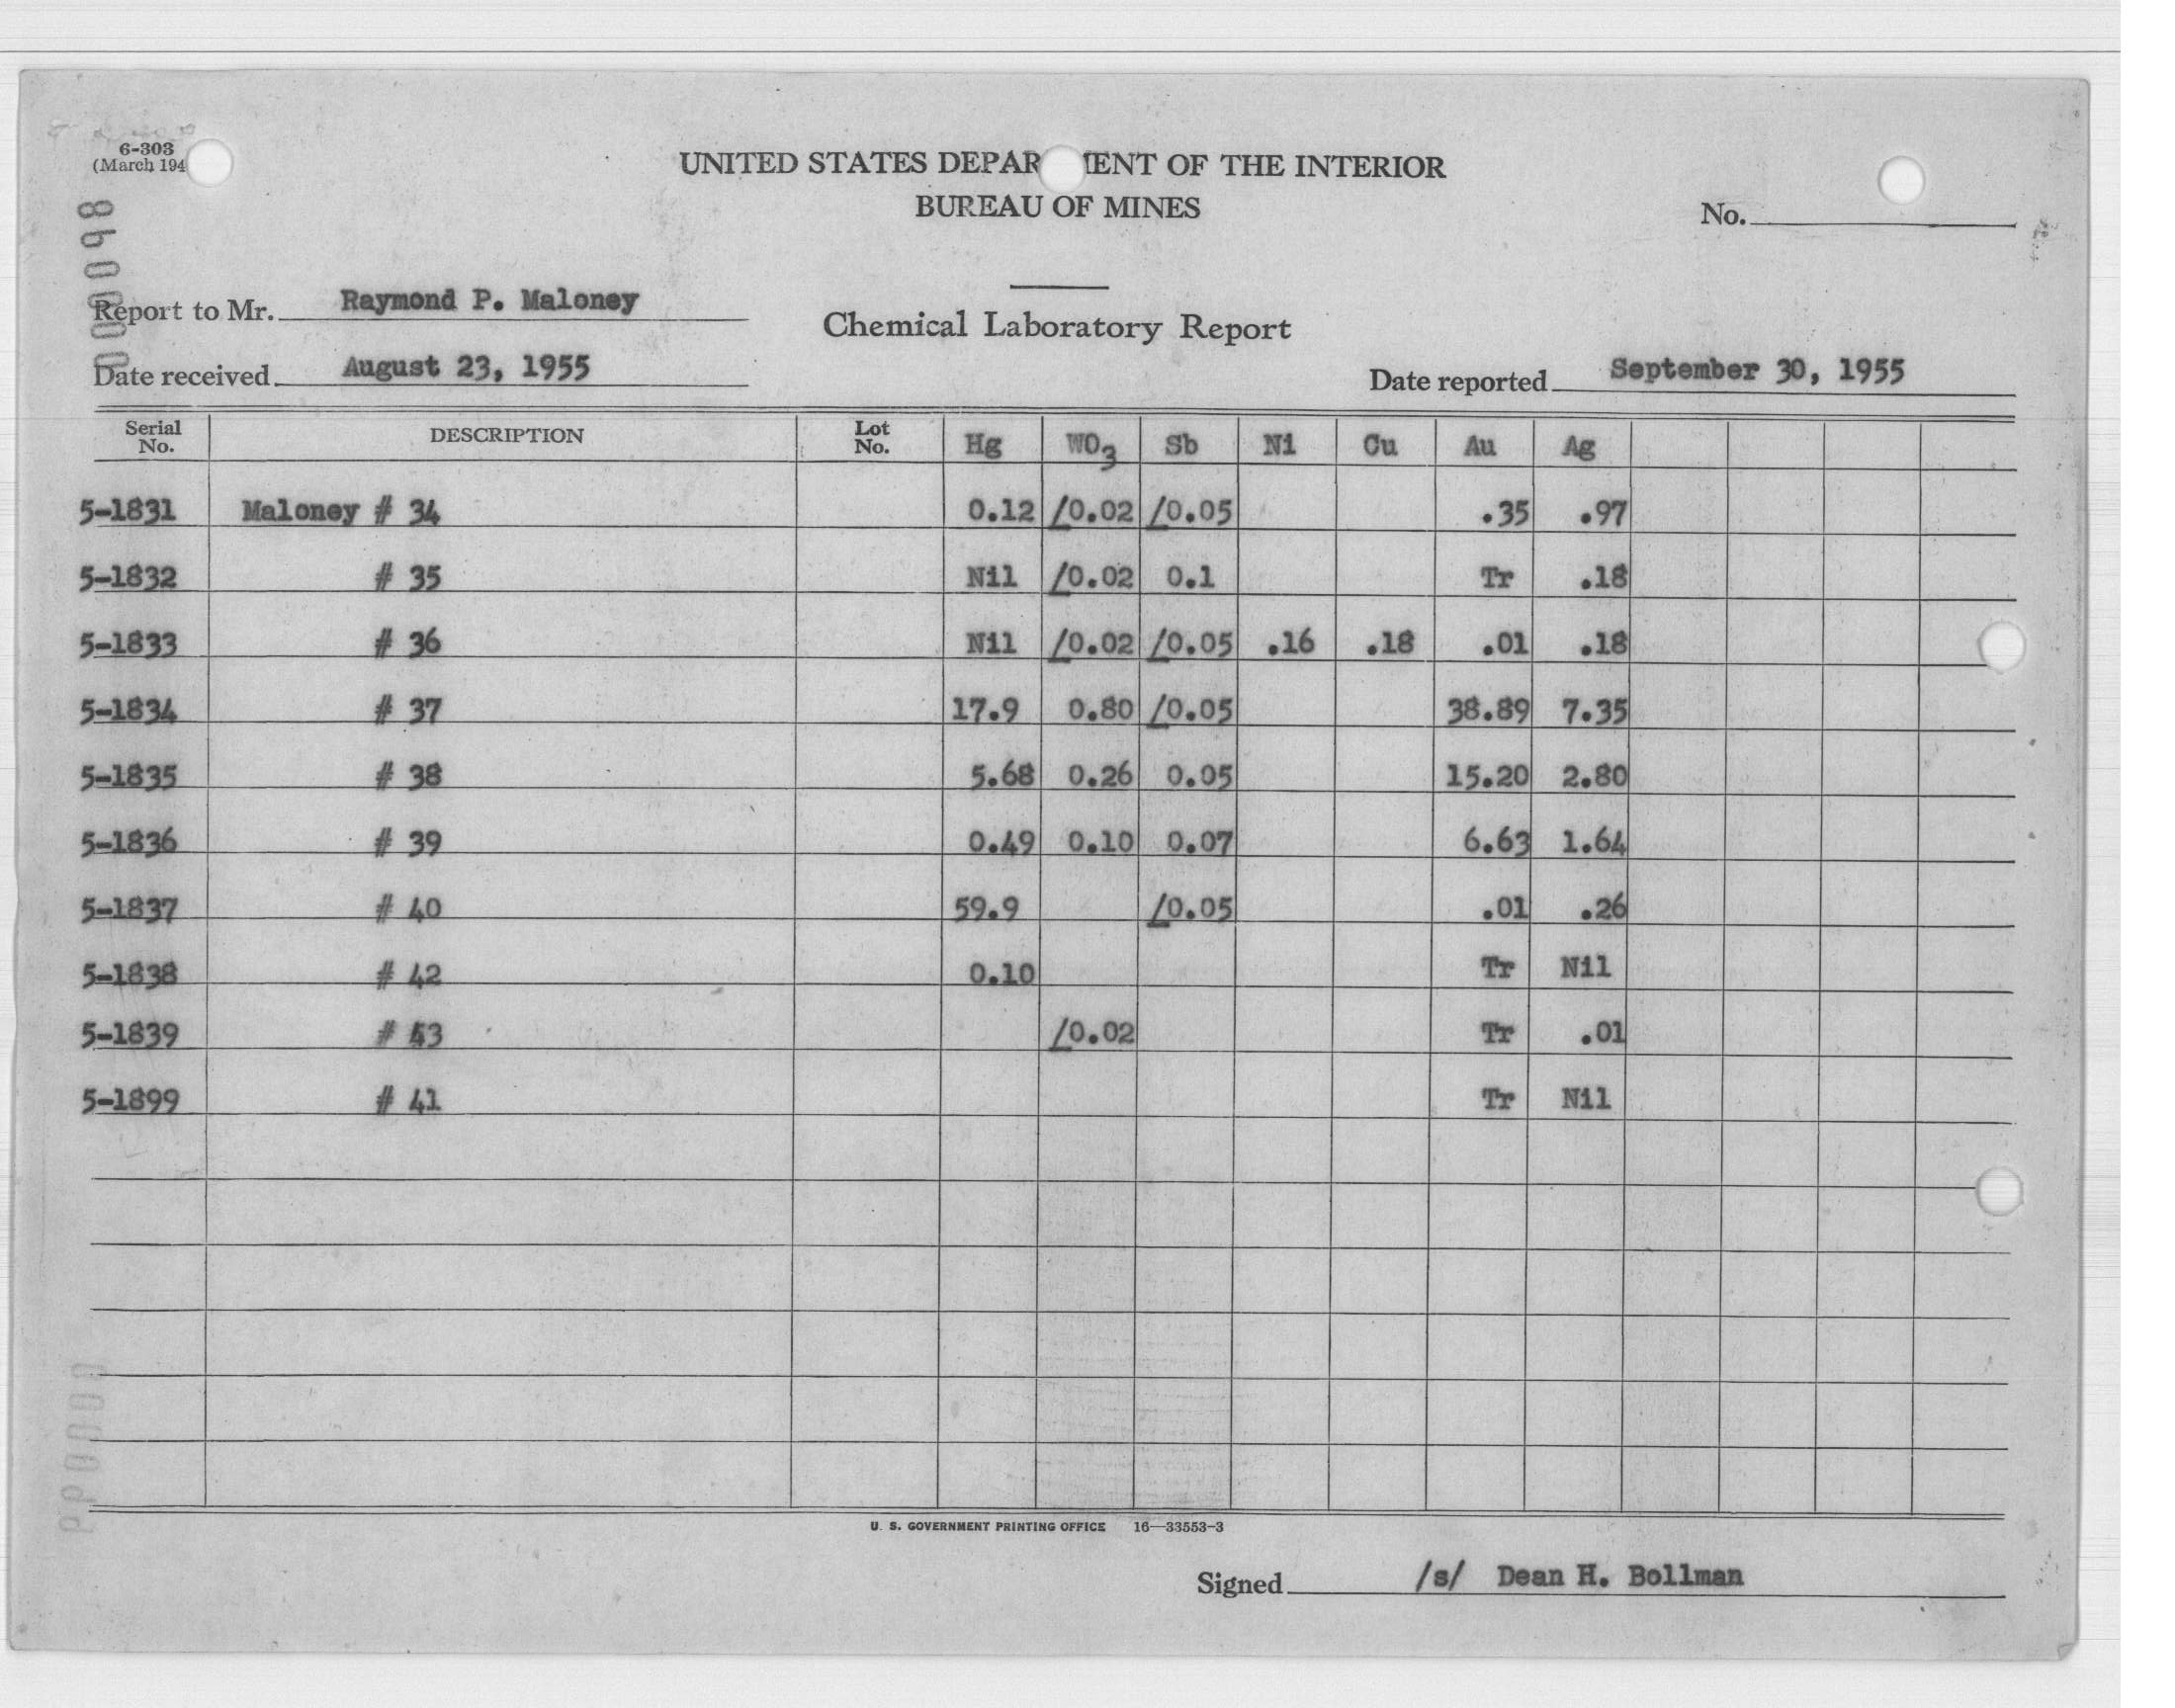 6-303
(March 194
UNITED STATES DEPAR MENT OF THE INTERIOR
BUREAU OF MINES
No.
Report to Mr. Raymond P. Maloney
Chemical Laboratory Report
Date received August 23, 1955
Date reported September 30, 1955
Serial No. DESCRIPTION Lot No. Hg WO3 Sb Ni Cu Au Ag
5-1831 Maloney # 34 0.12 /0.02 /0.05 .35 .97
5-1832 # 35 Nil /0.02 0.1 Tr .18
5-1833 # 36 Nil /0.02 /0.05 .16 .18 .01 .18
5-1834 # 37 17.9 0.80 /0.05 38.89 7.35
5-1835 # 38 5.68 0.26 0.05 15.20 2.80
5-1836 # 39 0.49 0.10 0.07 6.63 1.64
5-1837 # 40 59.9 /0.05 .01 .26
5-1838 # 42 0.10 Tr Nil
5-1839 # 43 /0.02 Tr .01
5-1899 # 41 Tr Nil
U. S. GOVERNMENT PRINTING OFFICE 16—33553-3
Signed /s/ Dean H. Bollman